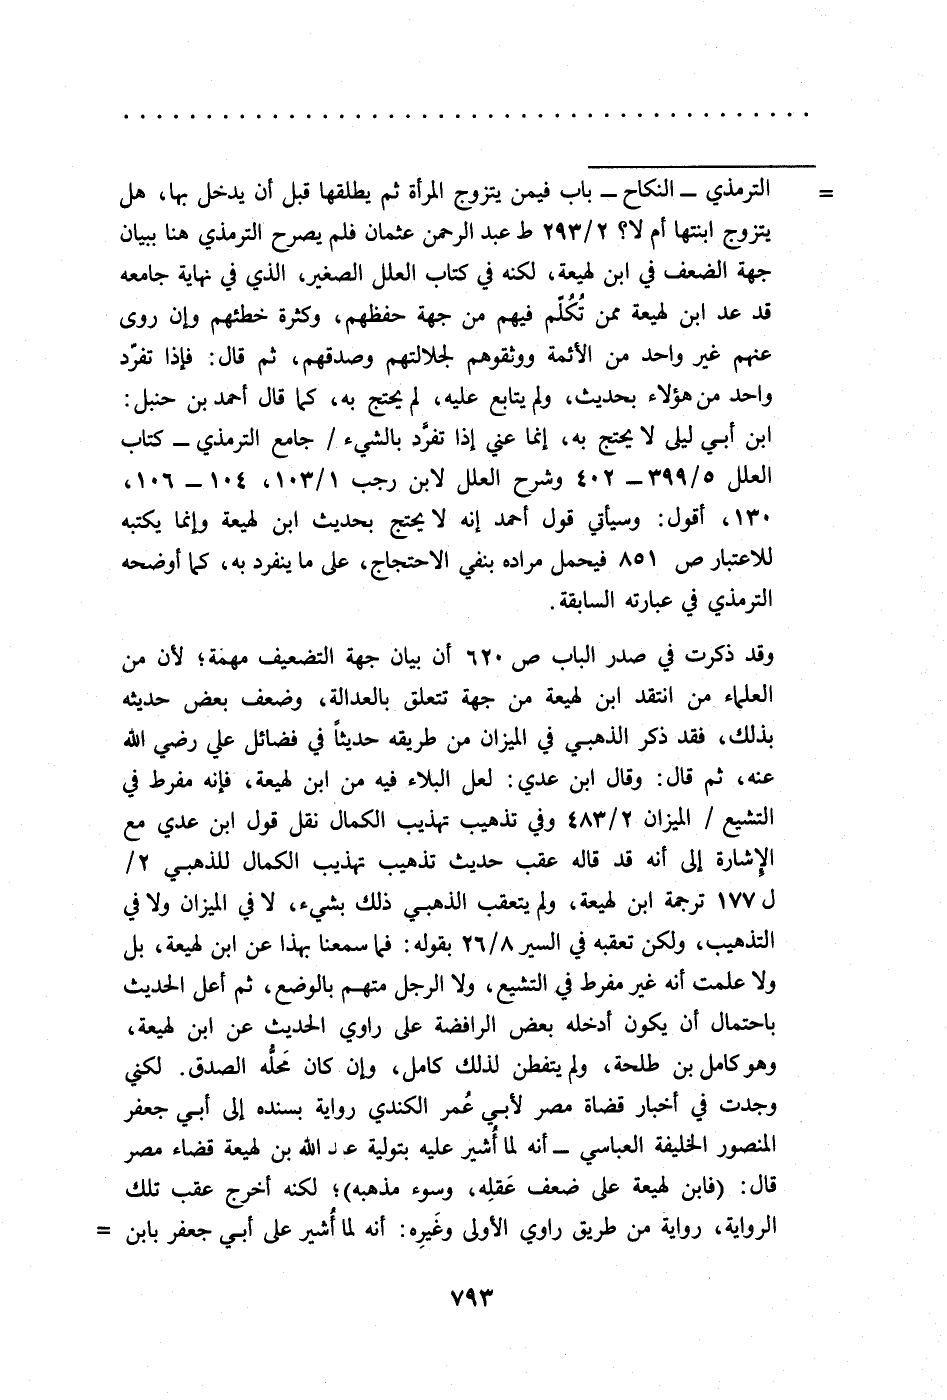 . . . . . . . . . . . . . . . . . . . . . . . . . . . . . . . . . . . . . . .
= الترمذي ــ النكاح ــ باب فيمن يتزوج المرأة ثم يطلقها قبل أن يدخل بها، هل
يتزوج ابنتها أم لا؟ ٢٩٣/٢ ط عبد الرحمن عثمان فلم يصرح الترمذي هنا ببيان
جهة الضعف في ابن لهيعة، لكنه في كتاب العلل الصغير، الذي في نهاية جامعه
قد عد ابن لهيعة ممن تُكُلّم فيهم من جهة حفظهم، وكثرة خطئهم وإن روى
عنهم غير واحد من الأئمة ووثقوهم لجلالتهم وصدقهم، ثم قال: فإذا تفرّد
واحد من هؤلاء بحديث، ولم يتابع عليه، لم يحتج به، كما قال أحمد بن حنبل:
ابن أبـي ليلى لا يحتج به، إنما عني إذا تفرَّد بالشيء / جامع الترمذي ــ كتاب
العلل ٣٩٩/٥ ــ ٤٠٢ وشرح العلل لابن رجب ١٠٣/١، ١٠٤ ــ ١٠٦،
١٣٠، أقول: وسيأتي قول أحمد إنه لا يحتج بحديث ابن لهيعة وإنما يكتبه
للاعتبار ص ٨٥١ فيحمل مراده بنفي الاحتجاج، على ما ينفرد به، كما أوضحه
الترمذي في عبارته السابقة.
وقد ذكرت في صدر الباب ص ٦٢٠ أن بيان جهة التضعيف مهمة؛ لأن من
العلماء من انتقد ابن لهيعة من جهة تتعلق بالعدالة، وضعف بعض حديثه
بذلك، فقد ذكر الذهبـي في الميزان من طريقه حديثاً في فضائل علي رضي الله
عنه، ثم قال: وقال ابن عدي: لعل البلاء فيه من ابن لهيعة، فإنه مفرط في
التشيع / الميزان ٤٨٣/٢ وفي تذهيب تهذيب الكمال نقل قول ابن عدي مع
الإشارة إلى أنه قد قاله عقب حديث تذهيب تهذيب الكمال للذهبـي ٢/
ل ١٧٧ ترجمة ابن لهيعة، ولم يتعقب الذهبـي ذلك بشيء، لا في الميزان ولا في
التذهيب، ولكن تعقبه في السير ٢٦/٨ بقوله: فما سمعنا بهذا عن ابن لهيعة، بل
ولا علمت أنه غير مفرط في التشيع، ولا الرجل متهم بالوضع، ثم أعل الحديث
باحتمال أن يكون أدخله بعض الرافضة على راوي الحديث عن ابن لهيعة،
وهو كامل بن طلحة، ولم يتفطن لذلك كامل، وإن كان مَحلُّه الصدق. لكني
وجدت في أخبار قضاة مصر لأبـي عُمر الكندي رواية بسنده إلى أبـي جعفر
المنصور الخليفة العباسي ــ أنه لما أُشير عليه بتولية عبد الله بن لهيعة قضاء مصر
قال: (فابن لهيعة على ضعف عَقلِه، وسوء مذهبه)؛ لكنه أخرج عقب تلك
الرواية، رواية من طريق راوي الأولى وغَيرِه: أنه لما أُشير على أبـي جعفر بابن =
٧٩٣